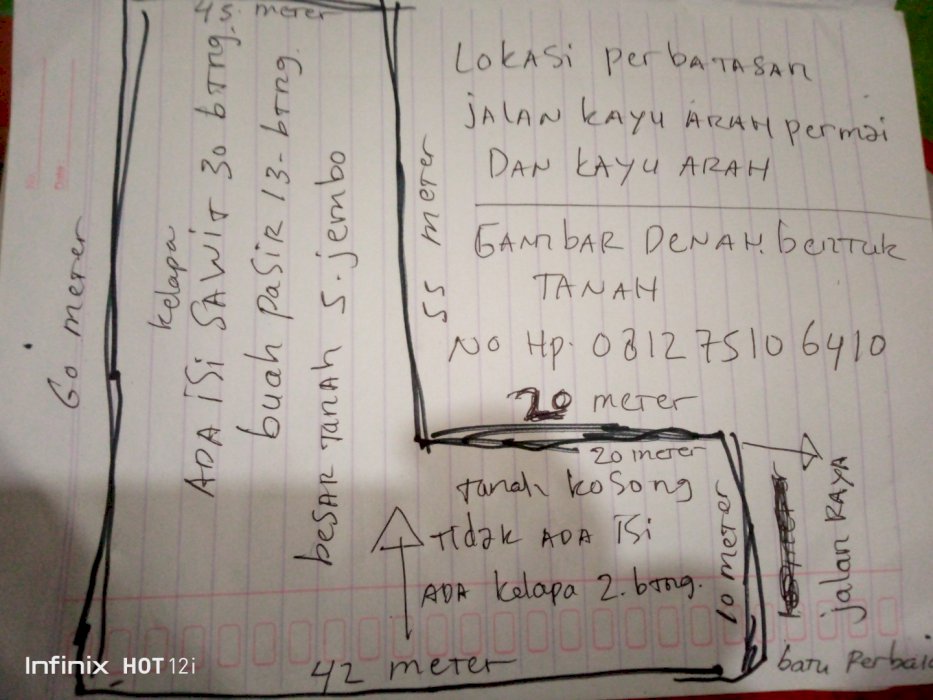 45 meter
60 meter
kelapa
ADA iSi SAWiT 30 bTng.
buah PaSiR 13. bTng.
beSAR TanAh 5. jembo
55 meter
LOKASi perbATASAn
jALAN KAYU ARAH permai
DAN KAYU ARAH
GAMbAR DENAH. benTuk
TANAH
NO Hp. 0812 7510 6410
20 meTer
20 meTer
Tanah koSong
TIdak ADA iSi
ADA kelapa 2. bTng.
10 meTer
jalan RAYA
42 meTer
baru Perbai
Infinix HOT 12i